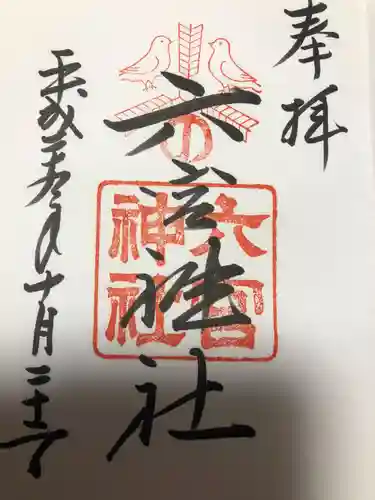 奉拝
六宮神社
平成三十年十月二十一日
六宮
神社